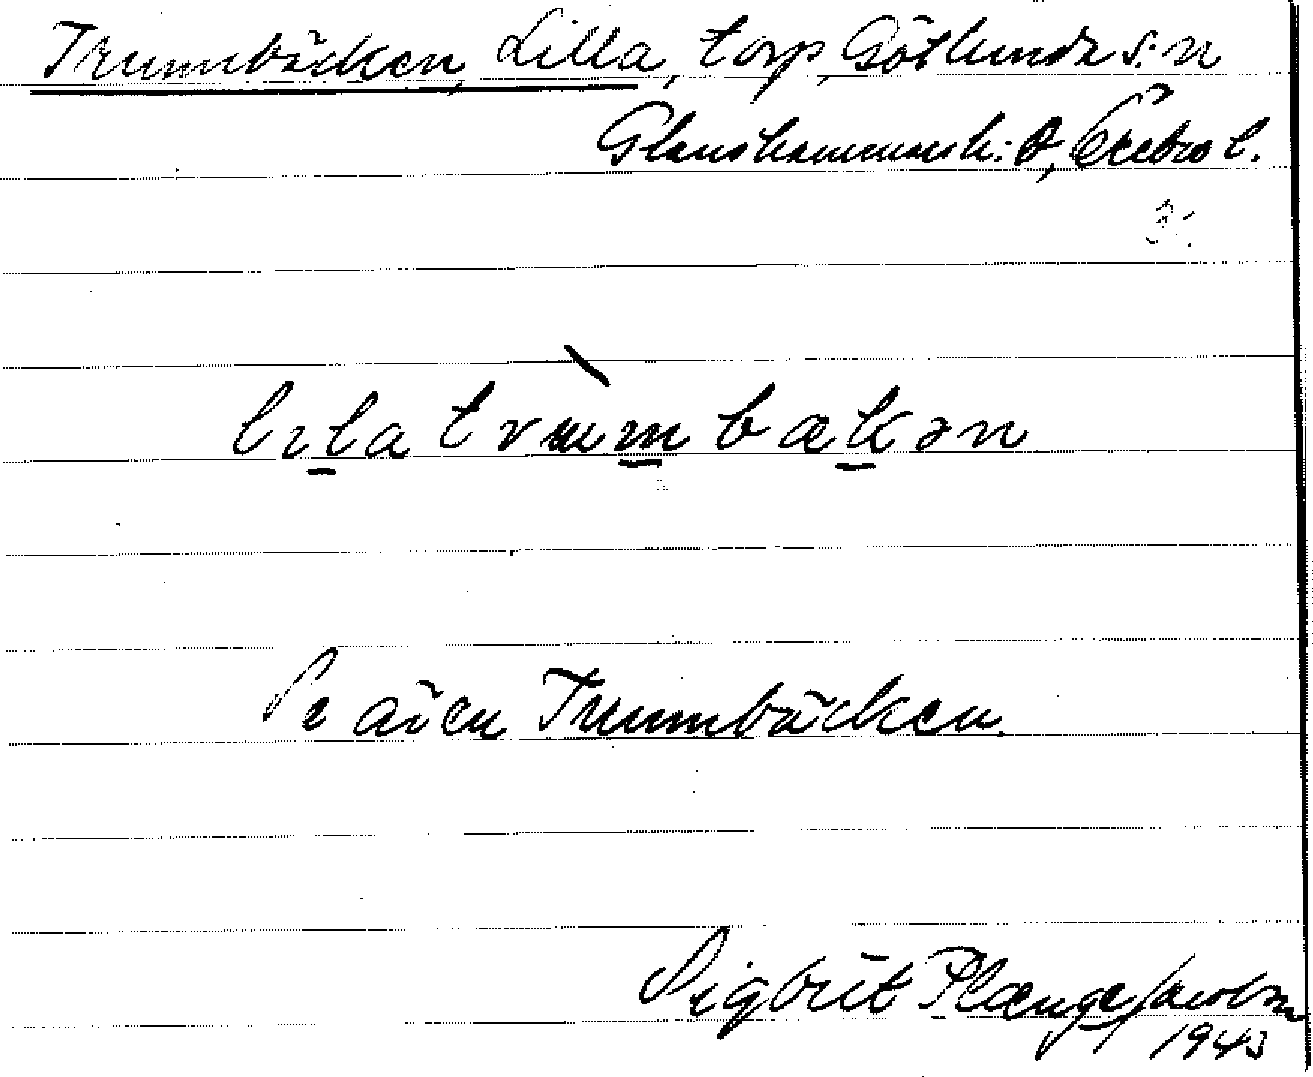 Trumbäcken, Lilla, torp, Götlunda s:n
Glanshammars h:d, Örebro l.
lɩla trumbækən
Se även Trumbäcken.
Sigbrit Plænge Jacobson
1943